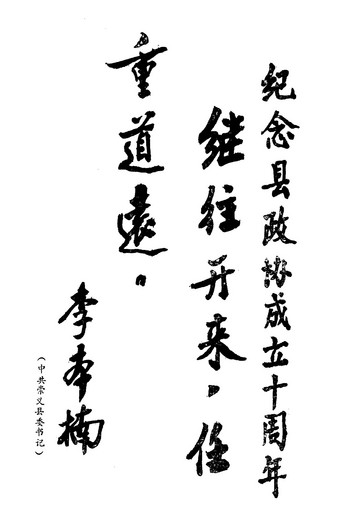 纪念县政协成立十周年
继往开来，任
重道远。
李本楠
（中共崇义县委书记）